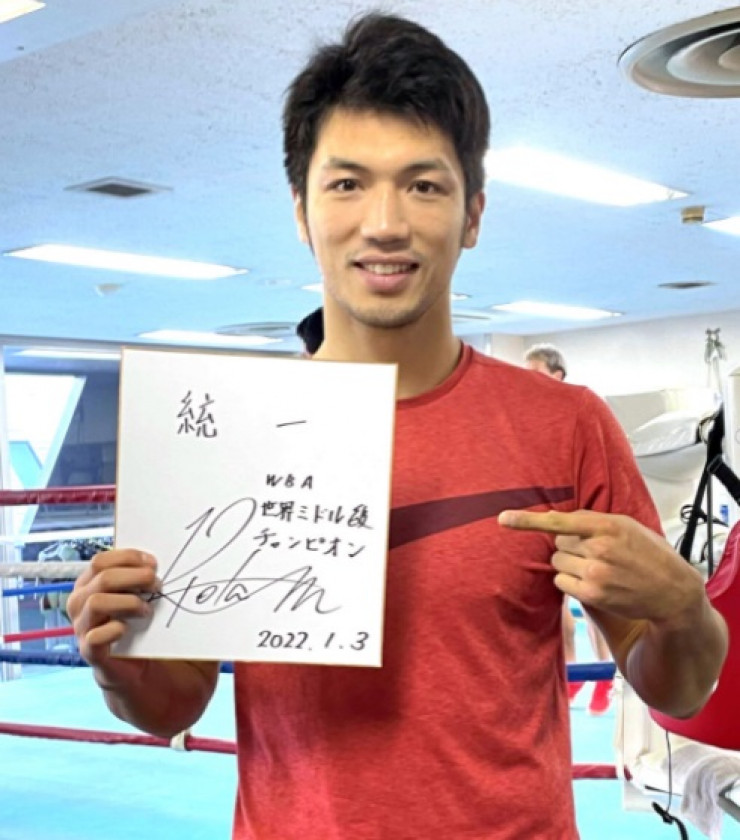 統一
WBA
世界ミドル級
チャンピオン
Ryota M
2022.1.3